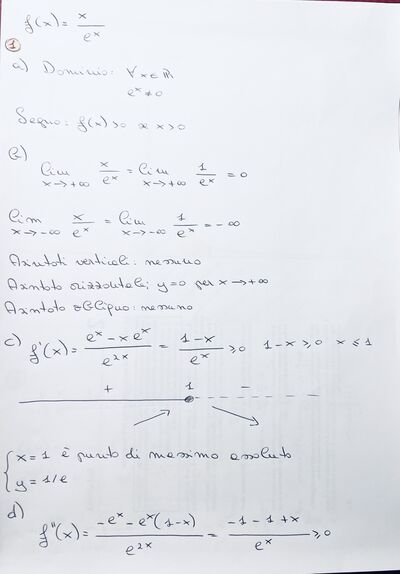 f(x) = x/e^x
1
a) Dominio: ∀x∈ℝ
e^x ≠ 0
Segno: f(x)>0 se x>0
b)
lim x→+∞ x/e^x = lim x→+∞ 1/e^x = 0
lim x→-∞ x/e^x = lim x→-∞ 1/e^x = -∞
Asintoti verticali: nessuno
Asintoto orizzontale; y=0 per x→+∞
Asintoto obliquo: nessuno
c) f'(x) = (e^x - x e^x)/e^2x = (1-x)/e^x ≥0 1-x≥0 x≤1
+ 1 -
{ x=1 è punto di massimo assoluto
y=1/e
d)
f''(x) = (-e^x - e^x(1-x))/e^2x = (-1-1+x)/e^x ≥0